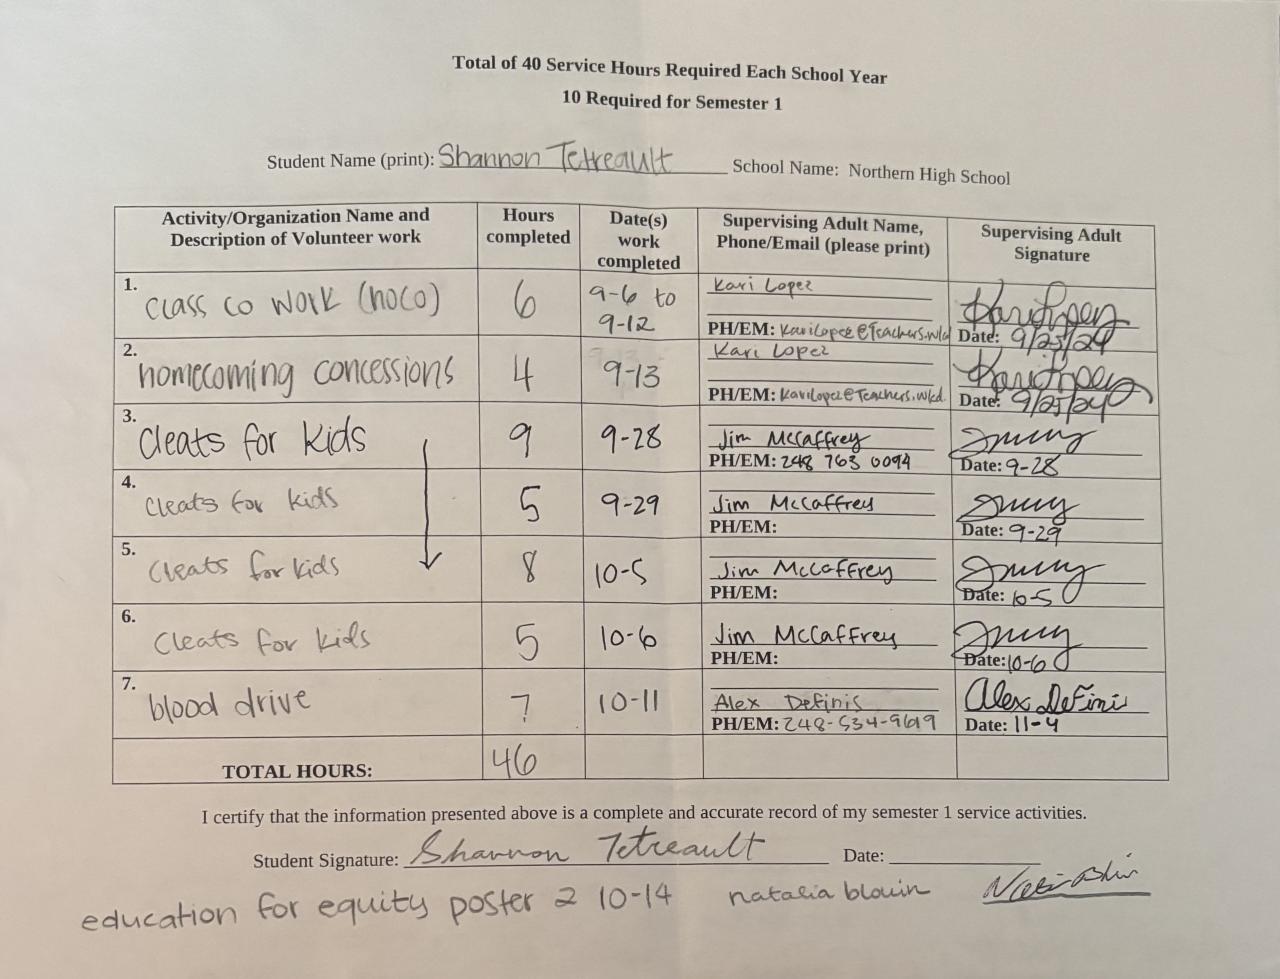 Total of 40 Service Hours Required Each School Year
10 Required for Semester 1
Student Name (print): Shannon Tetreault School Name: Northern High School
Activity/Organization Name and Description of Volunteer work Hours completed Date(s) work completed Supervising Adult Name, Phone/Email (please print) Supervising Adult Signature
1. Class co work (hoco) 6 9-6 to 9-12 Kari Lopez PH/EM: karilopez@teachers.wkd Kari Lopez Date: 9/25/24
2. homecoming concessions 4 9-13 Kari Lopez PH/EM: karilopez@Teachers.wkd. Kari Lopez Date: 9/25/24
3. Cleats for kids 9 9-28 Jim McCaffrey PH/EM: 248 763 0094 Date: 9-28
4. Cleats for kids 5 9-29 Jim McCaffrey PH/EM: Date: 9-29
5. Cleats for kids 8 10-5 Jim McCaffrey PH/EM: Date: 10-5
6. Cleats for kids 5 10-6 Jim McCaffrey PH/EM: Date: 10-6
7. blood drive 7 10-11 Alex Definis PH/EM: 248-534-9619 Alex DeFinis Date: 11-4
TOTAL HOURS: 46
I certify that the information presented above is a complete and accurate record of my semester 1 service activities.
Student Signature: Shannon Tetreault Date:
education for equity poster 2 10-14 natalia blouin